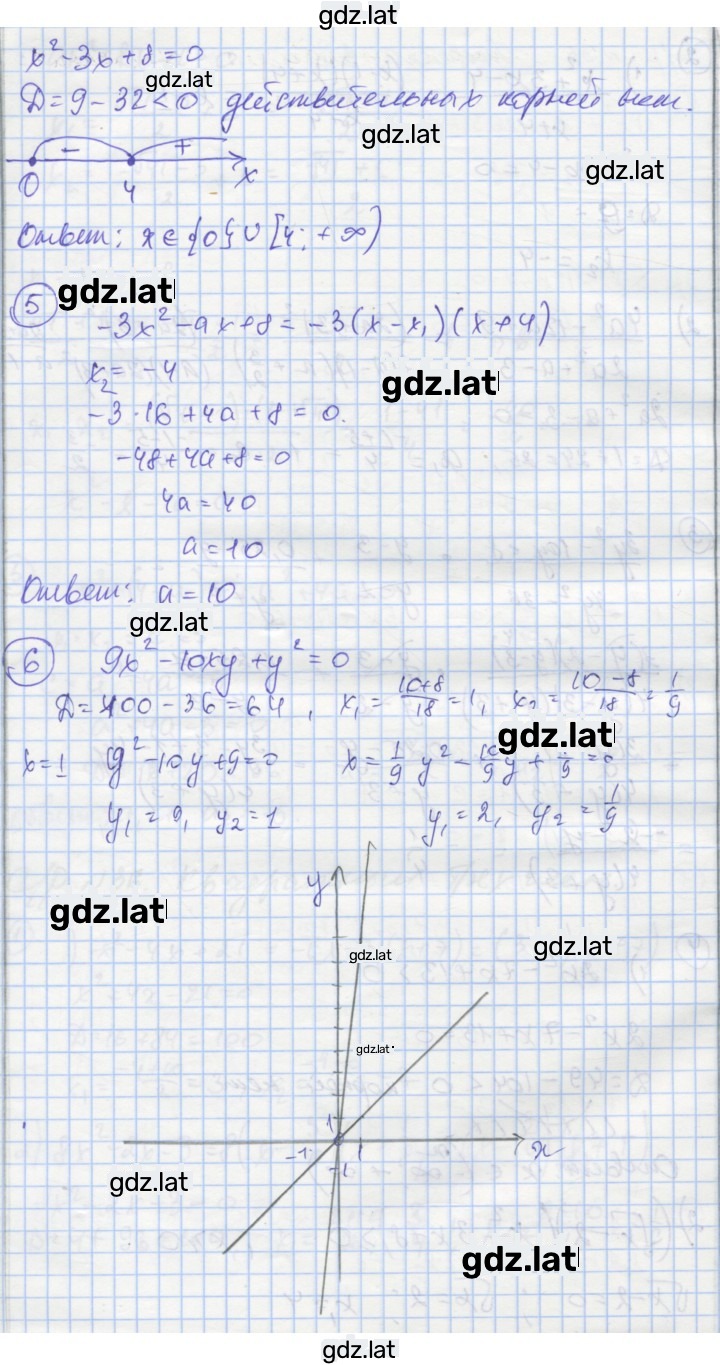 gdz.lat
x² - 3x + 8 = 0
gdz.lat
Д = 9 - 32 < 0 действительных корней нет.
gdz.lat
- +
0 4 x
gdz.lat
Ответ: x ∈ {0} ∪ [4; +∞)
5 gdz.lat
-3x² - ax + 8 = -3(x - x₁)(x + 4)
x₂ = -4
gdz.lat
-3·16 + 4a + 8 = 0.
-48 + 4a + 8 = 0
4a = 40
a = 10
Ответ: a = 10
gdz.lat
6 9x² - 10xy + y² = 0
Д = 100 - 36 = 64, x₁ = (10+8)/18 = 1, x₂ = (10-8)/18 = 1/9
gdz.lat
x = 1 y² - 10y + 9 = 0 x = 1/9 y² - 10/9 y + 1/9 = 0
y₁ = 9, y₂ = 1 y₁ = 2, y₂ = 1/9
y
gdz.lat
gdz.lat
gdz.lat
gdz.lat
1
-1 1 x
-1
gdz.lat
gdz.lat
gdz.lat